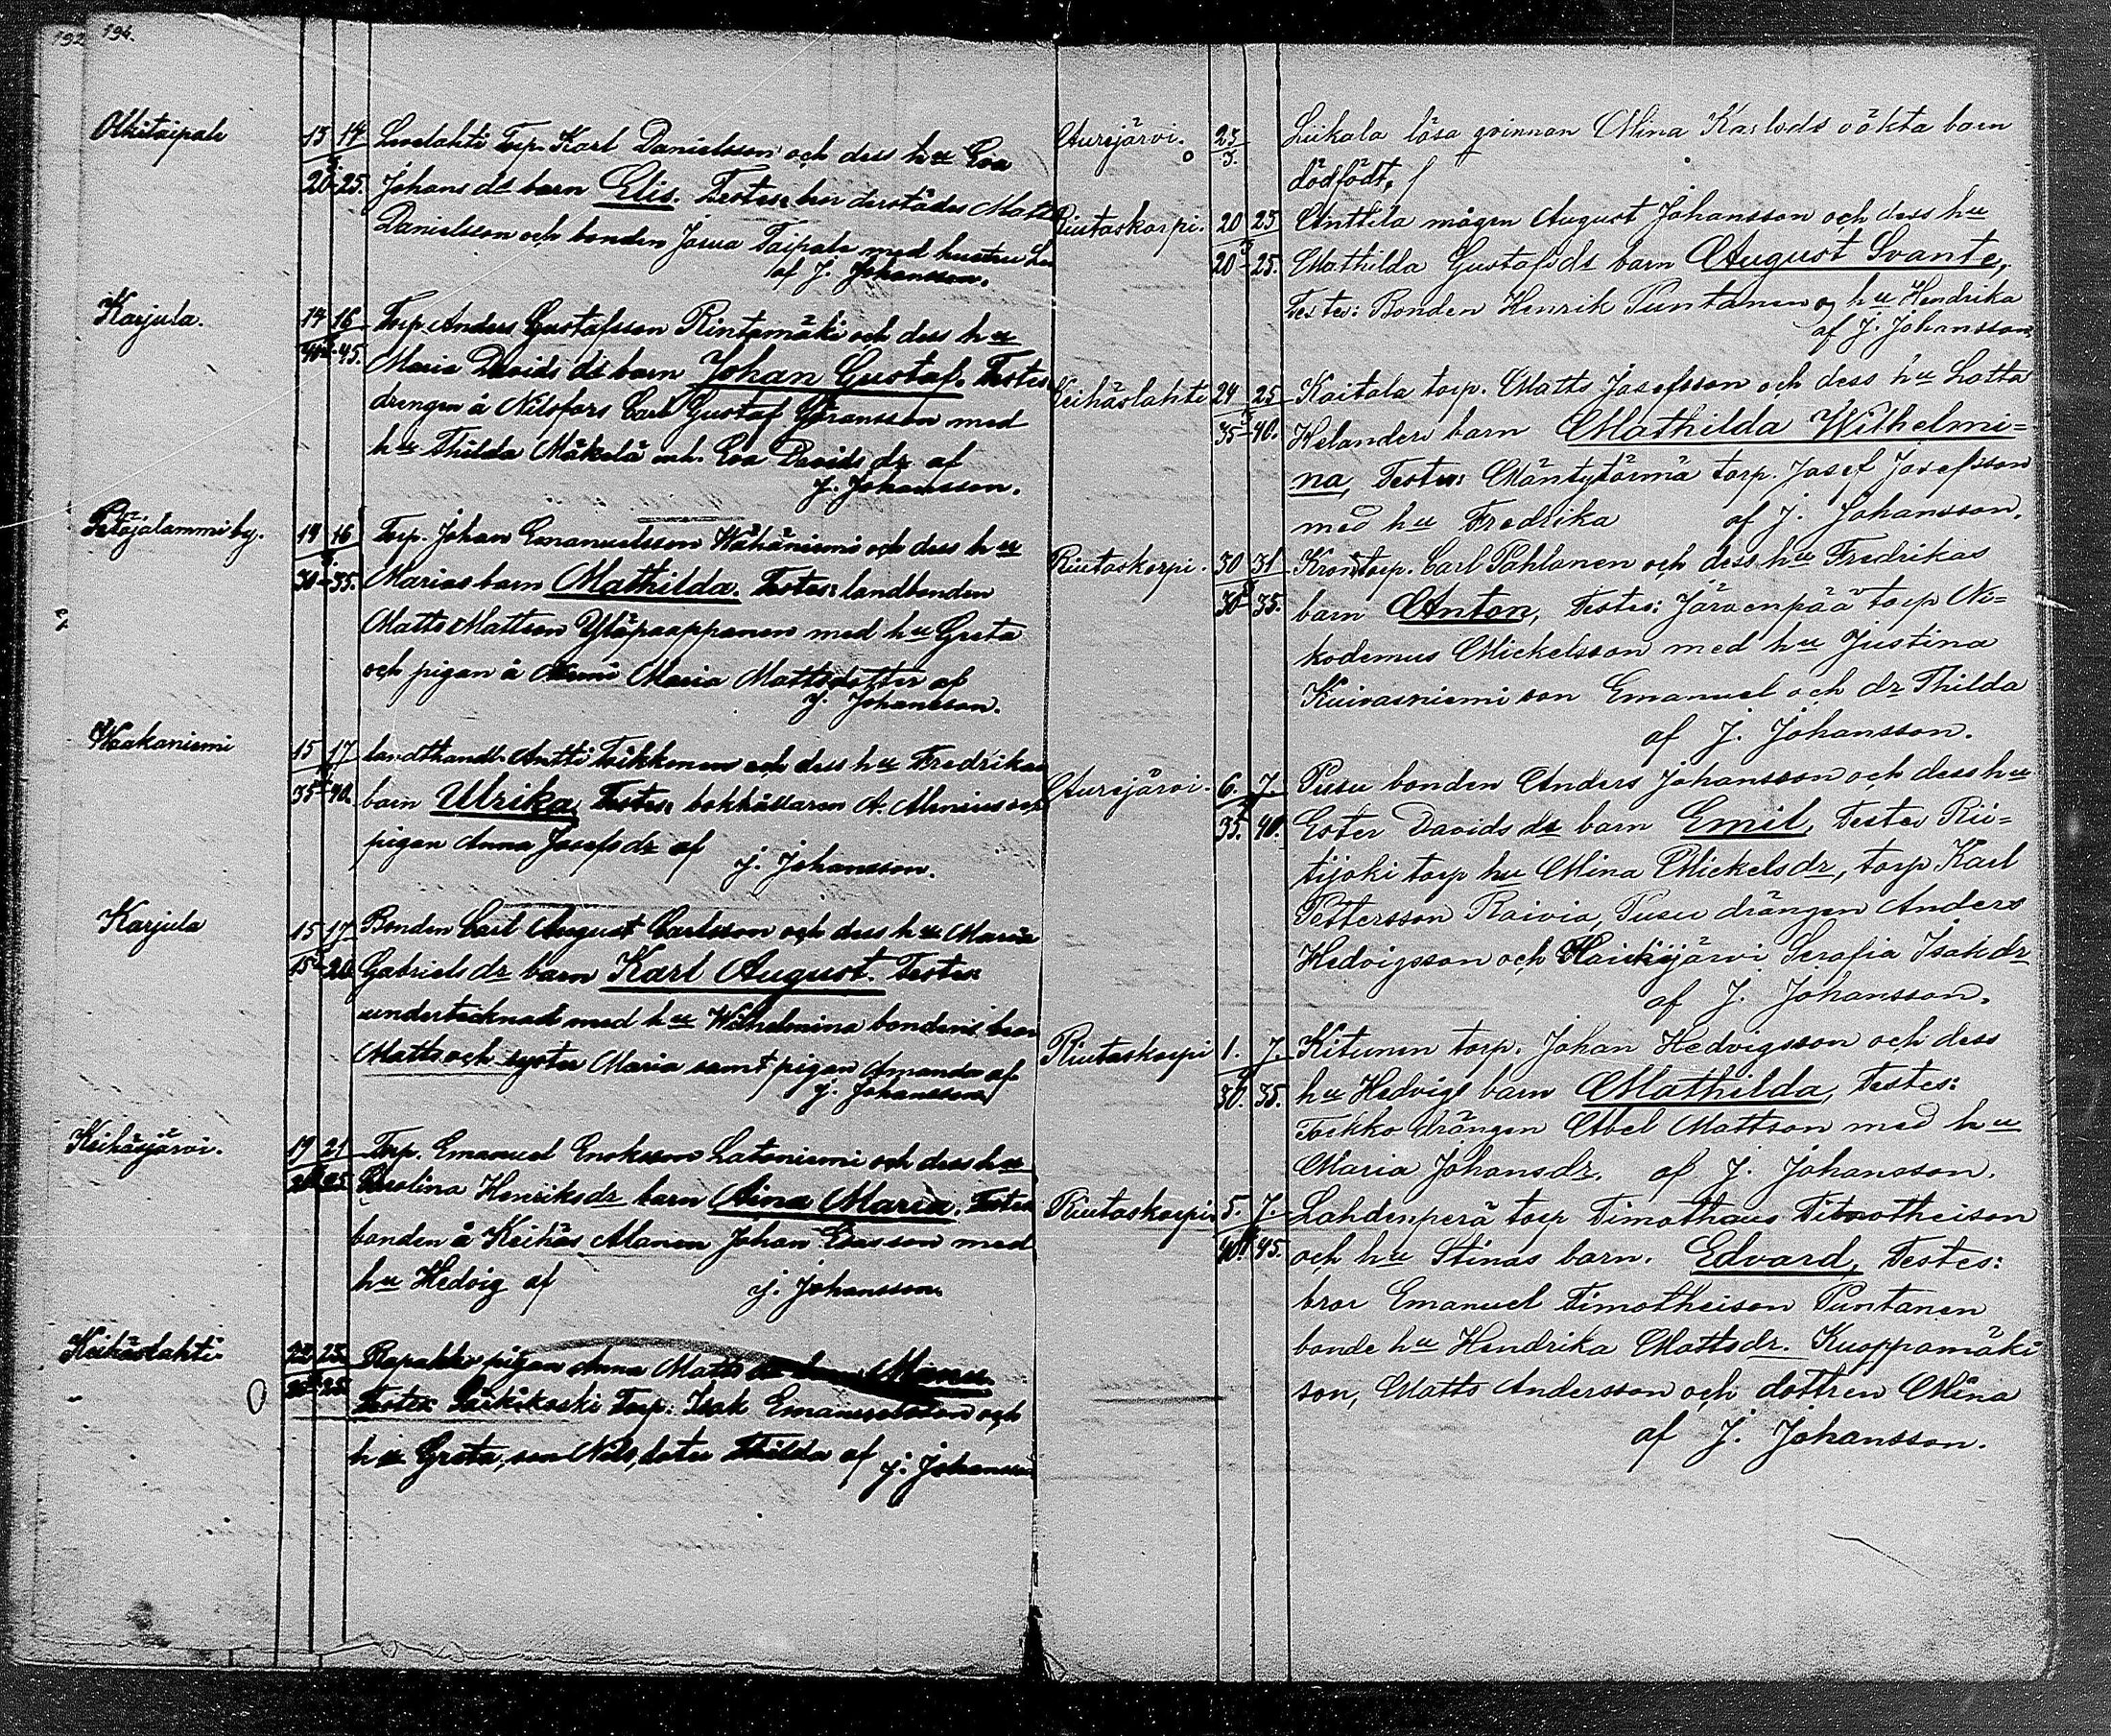 192 194.
Alkitaipale 13 14 Torp. Karl Danielsson och dess hu Eva
20-25. Johans dr barn Elis. Testes: bror derstädes Matts
Danielsson och bonden Josua Taipale med hustru
af J. Johansson.
Karjula. 14 16 Torp. Anders Gustafsson Rintamäki och dess hu
40-45. Maria Davids dr barn Johan Gustaf. Testes
drengen å Nilsfors Carl Gustaf Göransson med
hu Thilda Mäkelä inh. Eva Davids dr af
J. Johansson.
Petäjalammi by. 14 16 Torp. Johan Emanuelsson Wähäniemi och dess hu
30-35. Marias barn Mathilda. Testes: landbonden
Matts Mattson Yläpaappanen med hu Greta
och pigan å Maria Mattsdotter af
J. Johansson.
Waakaniemi 15 17 landthandl. Antti Toikkonen och dess hu Fredrikas
35-40. barn Ulrika, Testes: bokhållaren A. Alenius och
pigan Anna Josefs dr af J. Johansson.
Karjula 15 17 Bonden Carl August Carlsson och dess hu Maria
15-20 Gabriels dr barn Karl August. Testes:
undertecknad med hu Wilhelmina bondens bror
Matts och syster Maria samt pigan Amanda af
J. Johansson
Keihäsjärvi. 19 21 Torp. Emanuel Enoksson Latoniemi och dess hu
25 Karolina Henriksdr barn Aina Maria. Testes
bonden å Keihäs Manen Johan Esasson med
hu Hedvig af J. Johansson.
Keihäslahti 22 23 pigan Anna Matts Manu.
25. Testes: Torp: Isak Emanuelsson och
hu Greta, son Nils, doter Thilda af J. Johansson
Aurejärvi. 23 Liikala lösa qvinnan Mina Karlsdr oäkta barn
3. dödfödt.
Riutaskorpi. 20 25 Anttila mågen August Johansson och dess hu
20-25. Mathilda Gustafsdr barn August Svante,
Testes: Bonden Henrik Puntanen o hu Hendrika
af J. Johansson
Keihäslahti 24 25 Kaitala torp. Matts Josefsson och dess hu Lotta
35-40. Helanders barn Mathilda Wilhelmi=
na, Testes: Mäntytörmä torp. Josef Josefsson
med hu Fredrika af J. Johansson.
Riutaskorpi. 30 31 Kronotorp. Carl Pahlanen och dess hu Fredrikas
30-35. barn Anton, Testes: Järvenpää torp Ni=
kodemus Mickelsson med hu Justina
Kuivasniemi son Emanuel och dr Thilda
af J. Johansson.
Aurejärvi. 6. 7. Pusu bonden Anders Johansson och dess hu
35. 40. Ester Davids dr barn Emil, Testes Rii=
tijoki torp hu Mina Mickelsdr, torp Karl
Pettersson Raivio, Pusu drängen Anders
Hedvigsson och Haukijärvi Serafia Isakdr
af J. Johansson.
Riutaskorpi 1. 7. Kitunen torp. Johan Hedvigsson och dess
30. 35. hu Hedvigs barn Mathilda, Testes:
Tokko drängen Abel Mattson med hu
Maria Johansdr. af J. Johansson.
Riutaskorpi. 5. 7. Lahdenperä torp Timothaus Timotheison
40. 45. och hu Stinas barn. Edvard, Testes:
bror Emanuel Timotheison Puntanen
bonde hu Hendrika Mattsdr. Kuoppamäki
son, Matts Andersson och dottren Mina
af J. Johansson.